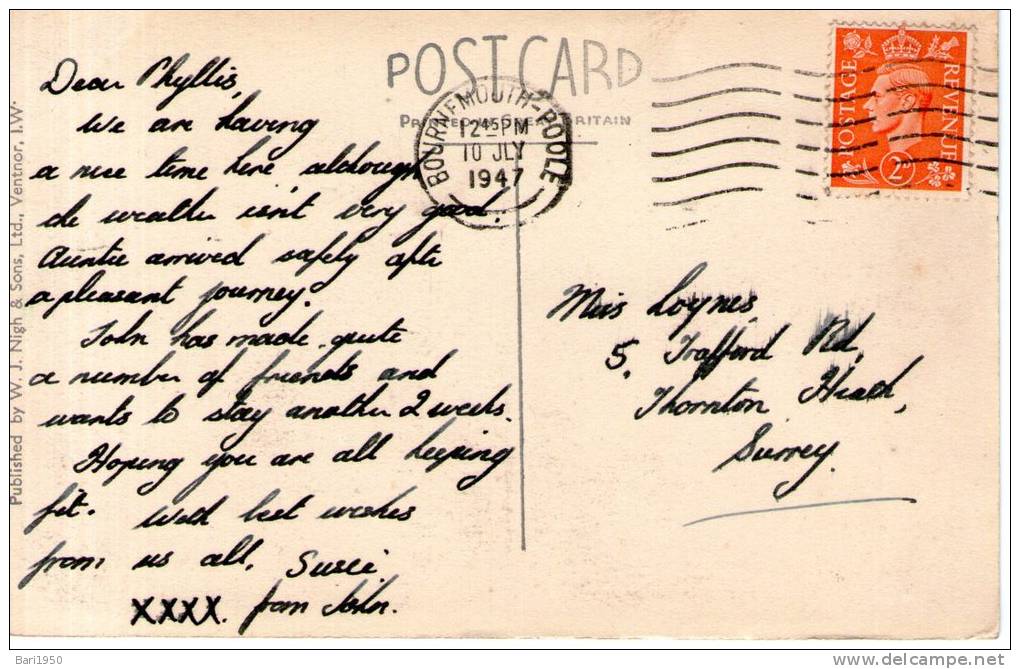 POST CARD
PRINTED IN GREAT BRITAIN
BOURNEMOUTH-POOLE
12 45 PM
10 JLY
1947
POSTAGE
REVENUE
2D
Published by W. J. Nigh & Sons, Ltd., Ventnor, I.W.
Dear Phyllis,
We are having
a nice time here although
the weather isn't very good.
Auntie arrived safely after
a pleasant journey.
John has made quite
a number of friends and
wants to stay another 2 weeks.
Hoping you are all keeping
fit. With best wishes
from us all, Susie.
XXXX. from John.
Miss Loynes,
5, Trafford Rd,
Thornton Heath,
Surrey.
Bari1950
www.delcampe.net